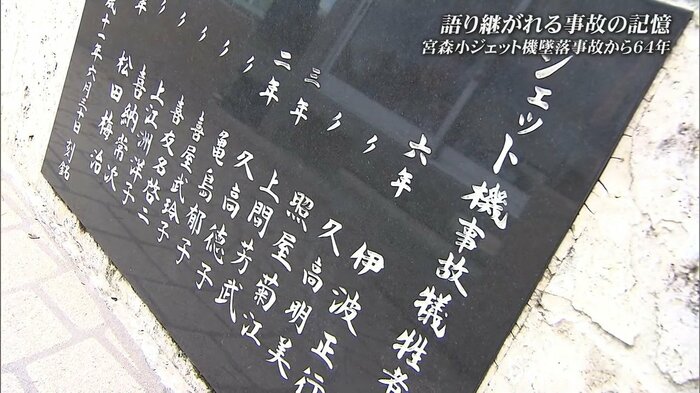 語り継がれる事故の記憶
宮森小ジェット機墜落事故から64年
ジェット機事故犠牲者
六年 伊波正行
〃 久高明美
〃 照屋菊江
三年 上間芳武
〃 久高徳子
二年 亀島郁子
〃 喜屋武玲子
〃 喜友名啓二
〃 上江洲洋子
〃 喜納常次
年 松田梅治
成十一年六月三十日 刻銘